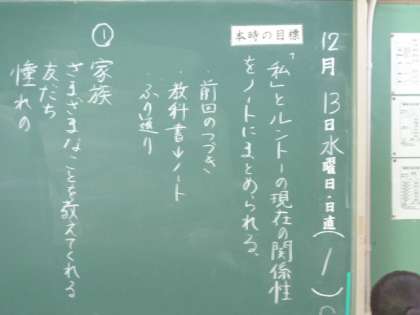 12月13日水曜日・日直(1)
本時の目標
「私」とルントーの現在の関係性
をノートにまとめられる。
・前回のつづき
・教科書→ノート
・ふり返り
①家族
さまざまなことを教えてくれる
友だち
憧れの